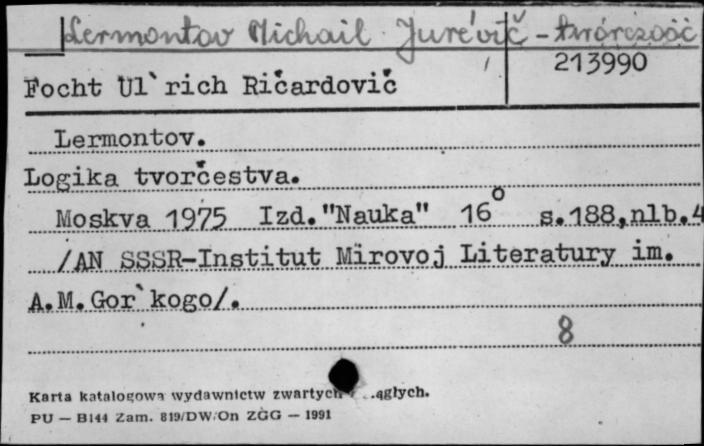 Lermontov Michail Jur'evič - twórczość
213990
Focht Ul`rich Ričardovič
Lermontov.
Logika tvorčestva.
Moskva 1975 Izd."Nauka" 16° s.188,nlb.4
/AN SSSR-Institut Mirovoj Literatury im.
A.M.Gor`kogo/.
8
Karta katalogowa wydawnictw zwartych ągłych.
PU — B144 Zam. 819/DW/On ZGG — 1991